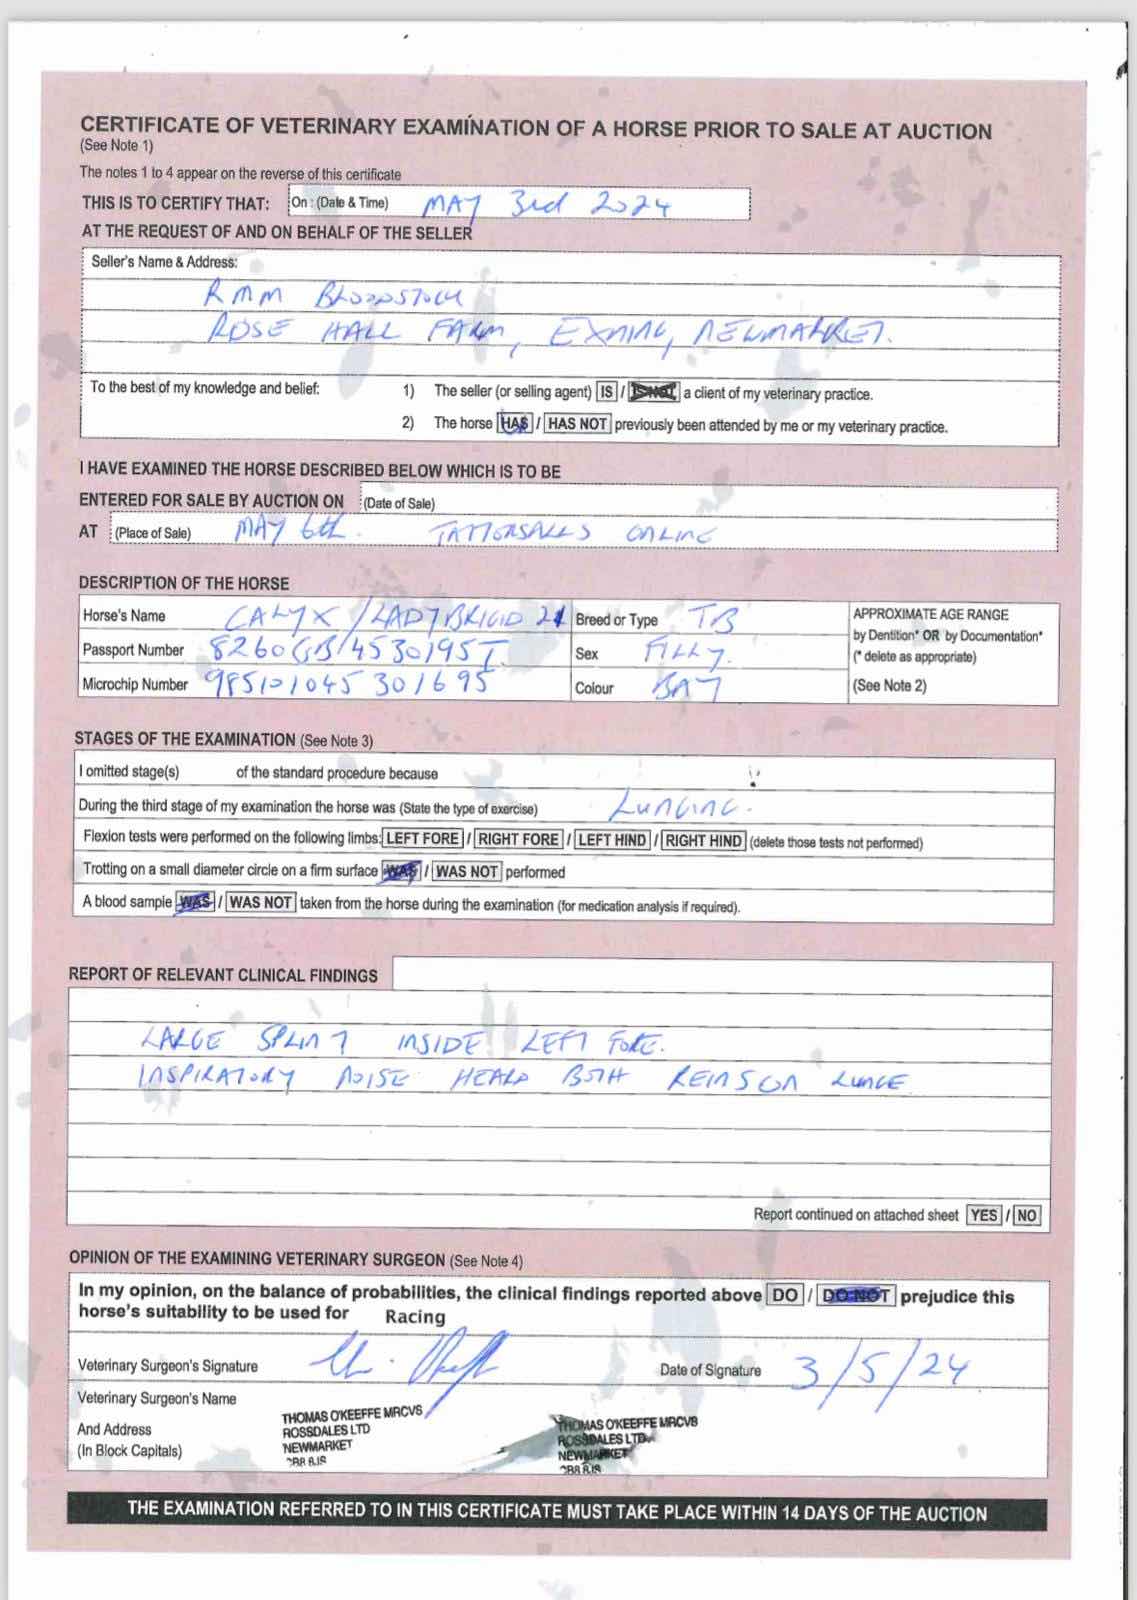 CERTIFICATE OF VETERINARY EXAMINATION OF A HORSE PRIOR TO SALE AT AUCTION
(See Note 1)
The notes 1 to 4 appear on the reverse of this certificate
THIS IS TO CERTIFY THAT: On : (Date & Time) MAY 3rd 2024
AT THE REQUEST OF AND ON BEHALF OF THE SELLER
Seller's Name & Address:
RMM BLOODSTOCK
ROSE HALL FARM, EXNING, NEWMARKET.
To the best of my knowledge and belief: 1) The seller (or selling agent) IS / IS NOT a client of my veterinary practice.
2) The horse HAS / HAS NOT previously been attended by me or my veterinary practice.
I HAVE EXAMINED THE HORSE DESCRIBED BELOW WHICH IS TO BE
ENTERED FOR SALE BY AUCTION ON (Date of Sale)
AT (Place of Sale) MAY 6th. TATTERSALLS ONLINE
DESCRIPTION OF THE HORSE
Horse's Name CALYX / LADY BRIGID 21 Breed or Type TB APPROXIMATE AGE RANGE
by Dentition* OR by Documentation*
Passport Number 8260GB/4530195I Sex FILLY. (* delete as appropriate)
Microchip Number 985101045301695 Colour BAY (See Note 2)
STAGES OF THE EXAMINATION (See Note 3)
I omitted stage(s) of the standard procedure because
During the third stage of my examination the horse was (State the type of exercise) LUNGING.
Flexion tests were performed on the following limbs: LEFT FORE / RIGHT FORE / LEFT HIND / RIGHT HIND (delete those tests not performed)
Trotting on a small diameter circle on a firm surface WAS / WAS NOT performed
A blood sample WAS / WAS NOT taken from the horse during the examination (for medication analysis if required).
REPORT OF RELEVANT CLINICAL FINDINGS
LARGE SPLINT INSIDE LEFT FORE.
INSPIRATORY NOISE HEARD BOTH REINS ON LUNGE
Report continued on attached sheet YES / NO
OPINION OF THE EXAMINING VETERINARY SURGEON (See Note 4)
In my opinion, on the balance of probabilities, the clinical findings reported above DO / DO NOT prejudice this
horse's suitability to be used for Racing
Veterinary Surgeon's Signature Date of Signature 3/5/24
Veterinary Surgeon's Name
And Address
(In Block Capitals)
THOMAS O'KEEFFE MRCVS
ROSSDALES LTD
NEWMARKET
THOMAS O'KEEFFE MRCVS
ROSSDALES LTD
NEWMARKET
THE EXAMINATION REFERRED TO IN THIS CERTIFICATE MUST TAKE PLACE WITHIN 14 DAYS OF THE AUCTION